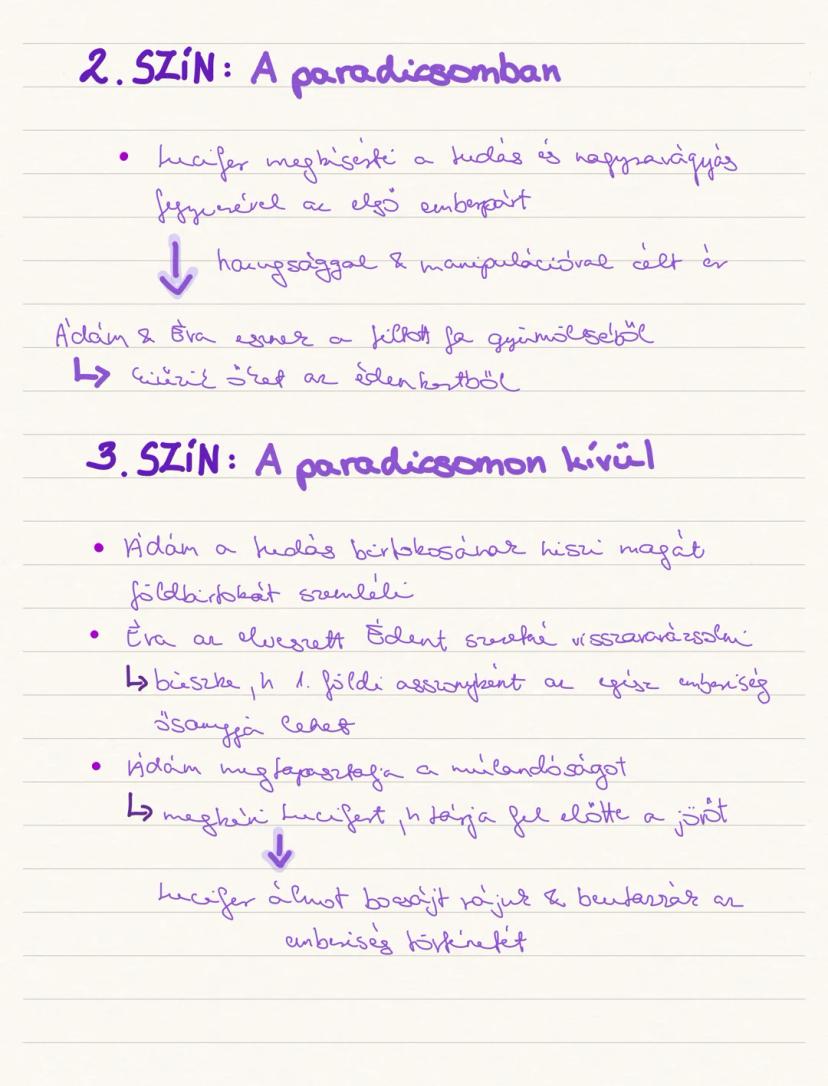 2. SZÍN: A paradicsomban
• Lucifer megkísérti a tudás és nagyravágyás
fegyverével az első emberpárt
↓ hazugsággal & manipulációval célt ér
Ádám & Éva esznek a tiltott fa gyümölcséből
↳ kiűzik őket az édenkertből
3. SZÍN: A paradicsomon kívül
• Ádám a tudás birtokosának hiszi magát
földbirtokát szemléli
• Éva az elveszett Édent szeretné visszavarázsolni
↳ büszke, h 1. földi asszonyként az egész emberiség
ősanyja lehet
• Ádám megtapasztalja a múlandóságot
↳ megkéri Lucifert, h tárja fel előtte a jövőt
↓
Lucifer álmot bocsájt rájuk & az
emberiség történetét